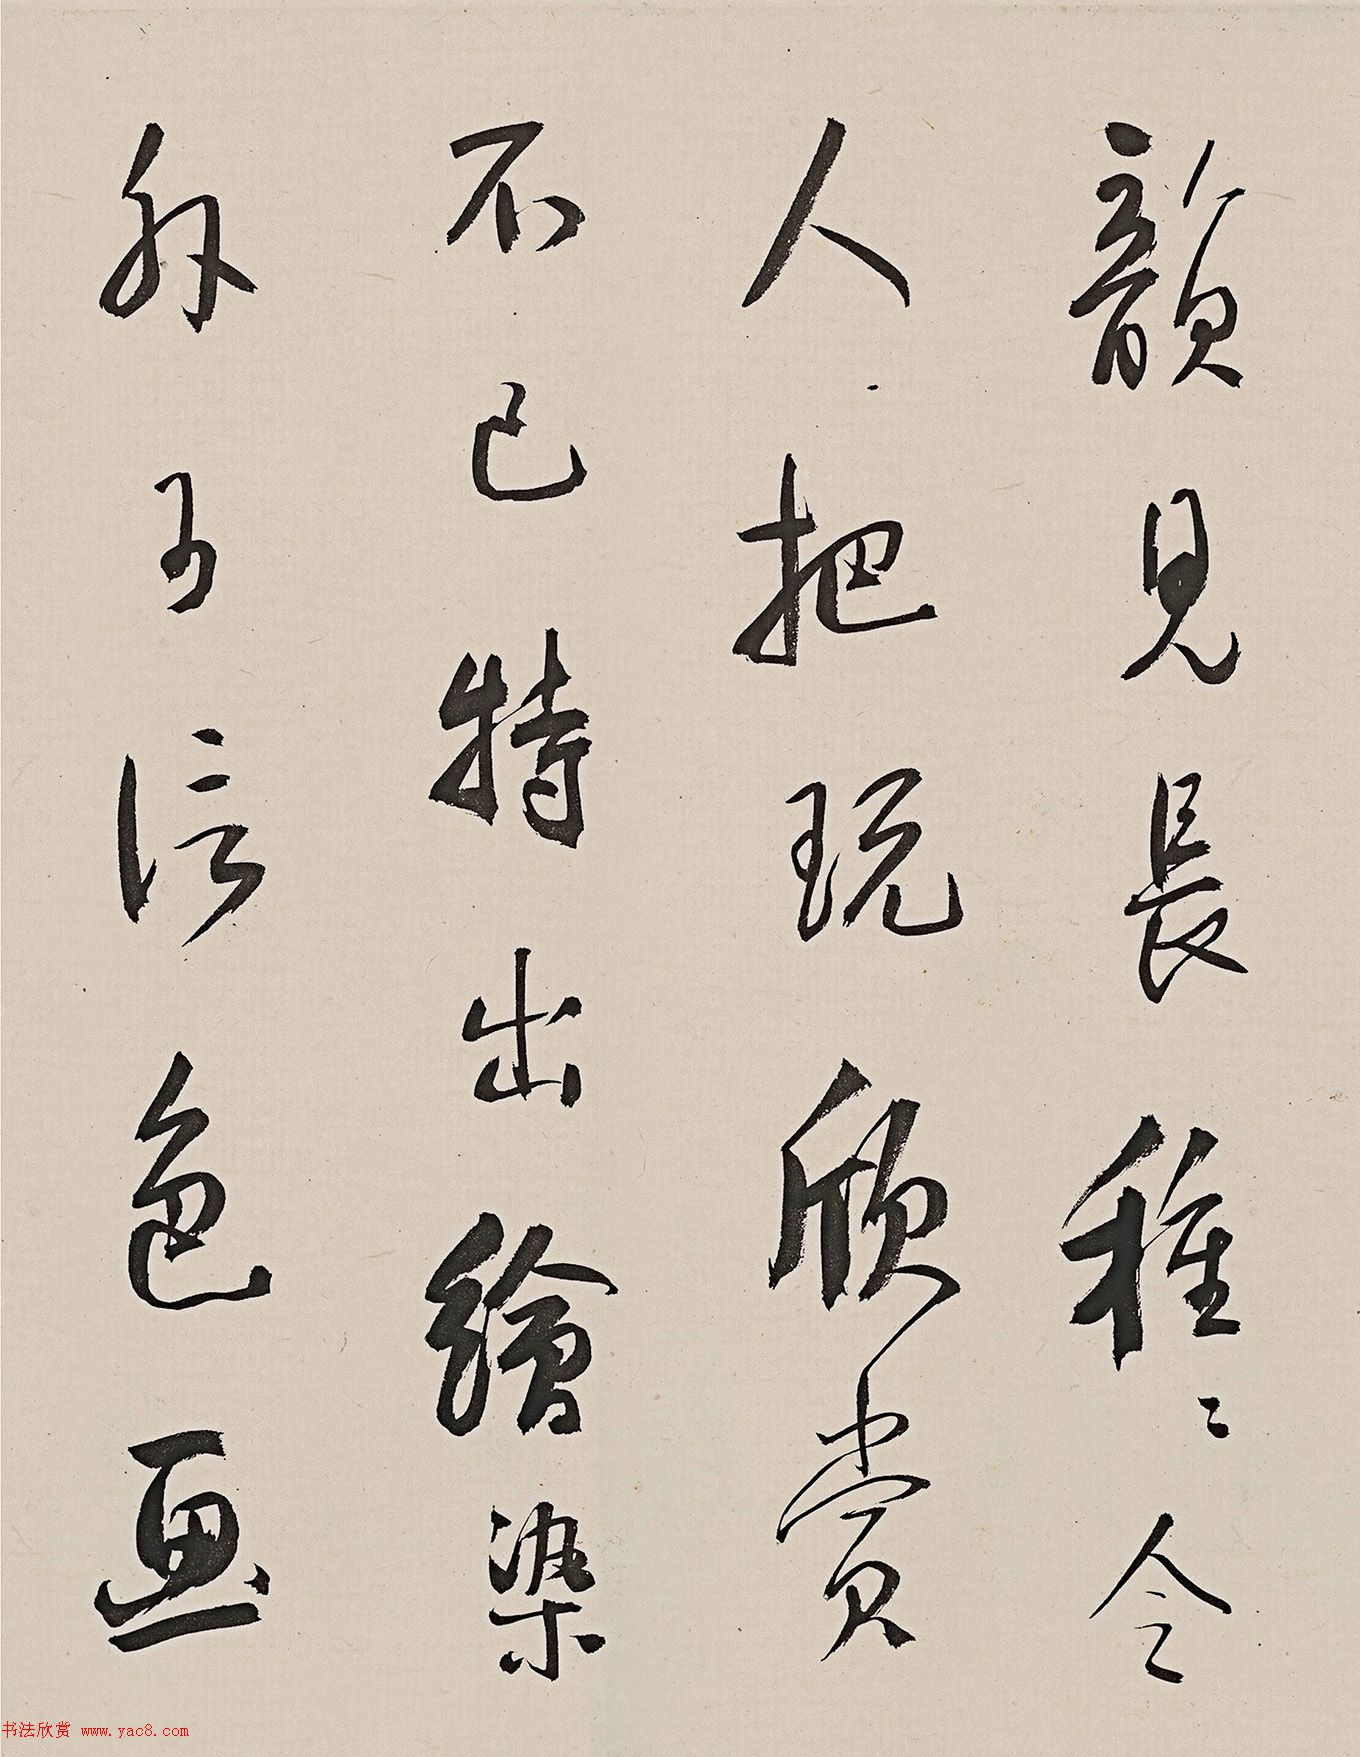 韻見長種〻令
人把玩欣賞
不已特出繪染
外可色画
书法欣赏 www.yac8.com